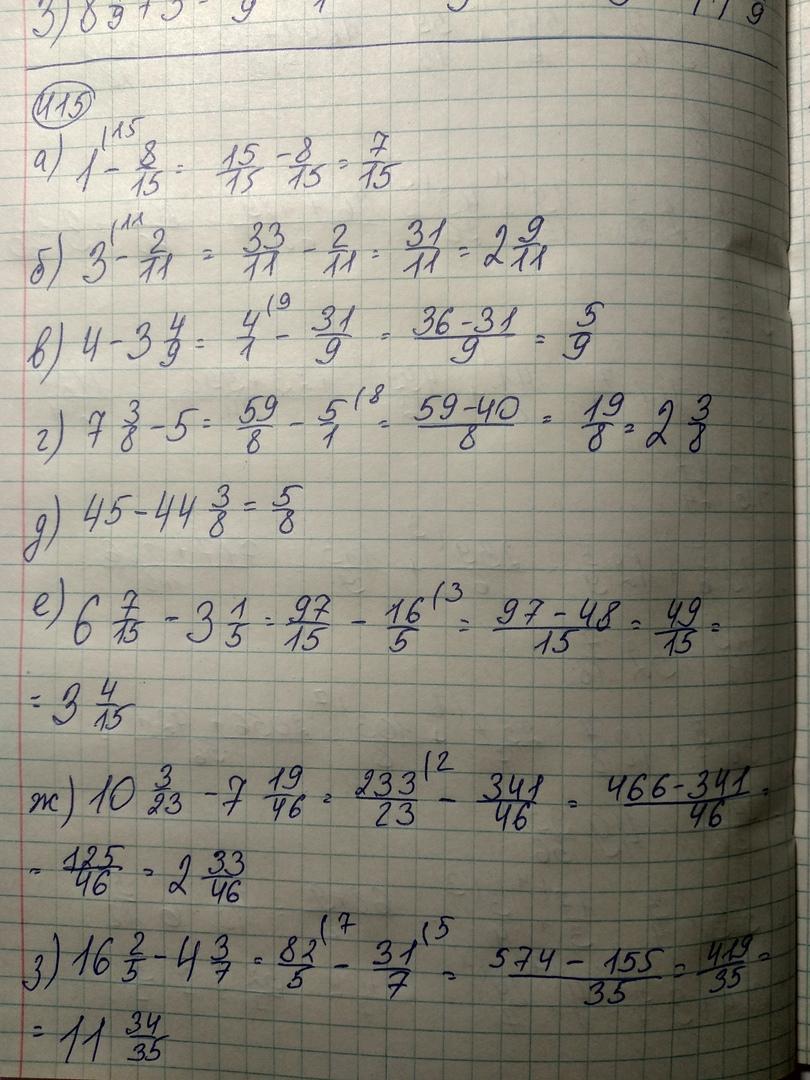 415
а) 1(15 - 8/15 = 15/15 - 8/15 = 7/15
б) 3(11 - 2/11 = 33/11 - 2/11 = 31/11 = 2 9/11
в) 4 - 3 4/9 = 4/1(9 - 31/9 = (36-31)/9 = 5/9
г) 7 3/8 - 5 = 59/8 - 5/1(8 = (59-40)/8 = 19/8 = 2 3/8
д) 45 - 44 3/8 = 5/8
е) 6 7/15 - 3 1/5 = 97/15 - 16/5(3 = (97-48)/15 = 49/15 =
= 3 4/15
ж) 10 3/23 - 7 19/46 = 233/23(2 - 341/46 = (466-341)/46 =
= 125/46 = 2 33/46
з) 16 2/5 - 4 3/7 = 82/5(7 - 31/7(5 = (574-155)/35 = 419/35 =
= 11 34/35